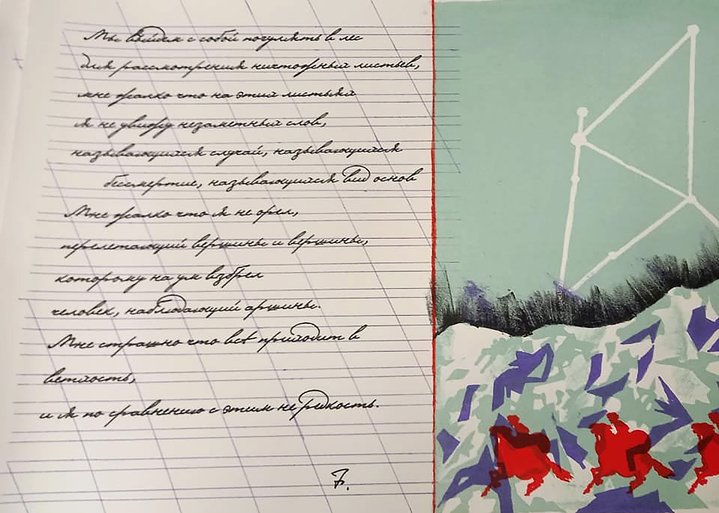 Мы выйдем с собой погулять в лес
для рассмотрения ничтожных листьев,
мне жалко что на этих листьях
я не увижу незаметных слов,
называющихся случай, называющихся
бессмертие, называющихся вид основ
Мне жалко что я не орел,
перелетающий вершины и вершины,
которому на ум взбрел
человек, наблюдающий аршины.
Мне страшно что всё приходит в
ветхость,
и я по сравнению с этим не редкость.